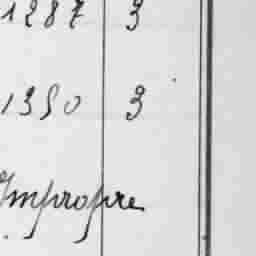 1287 3
1350 3
Impropre